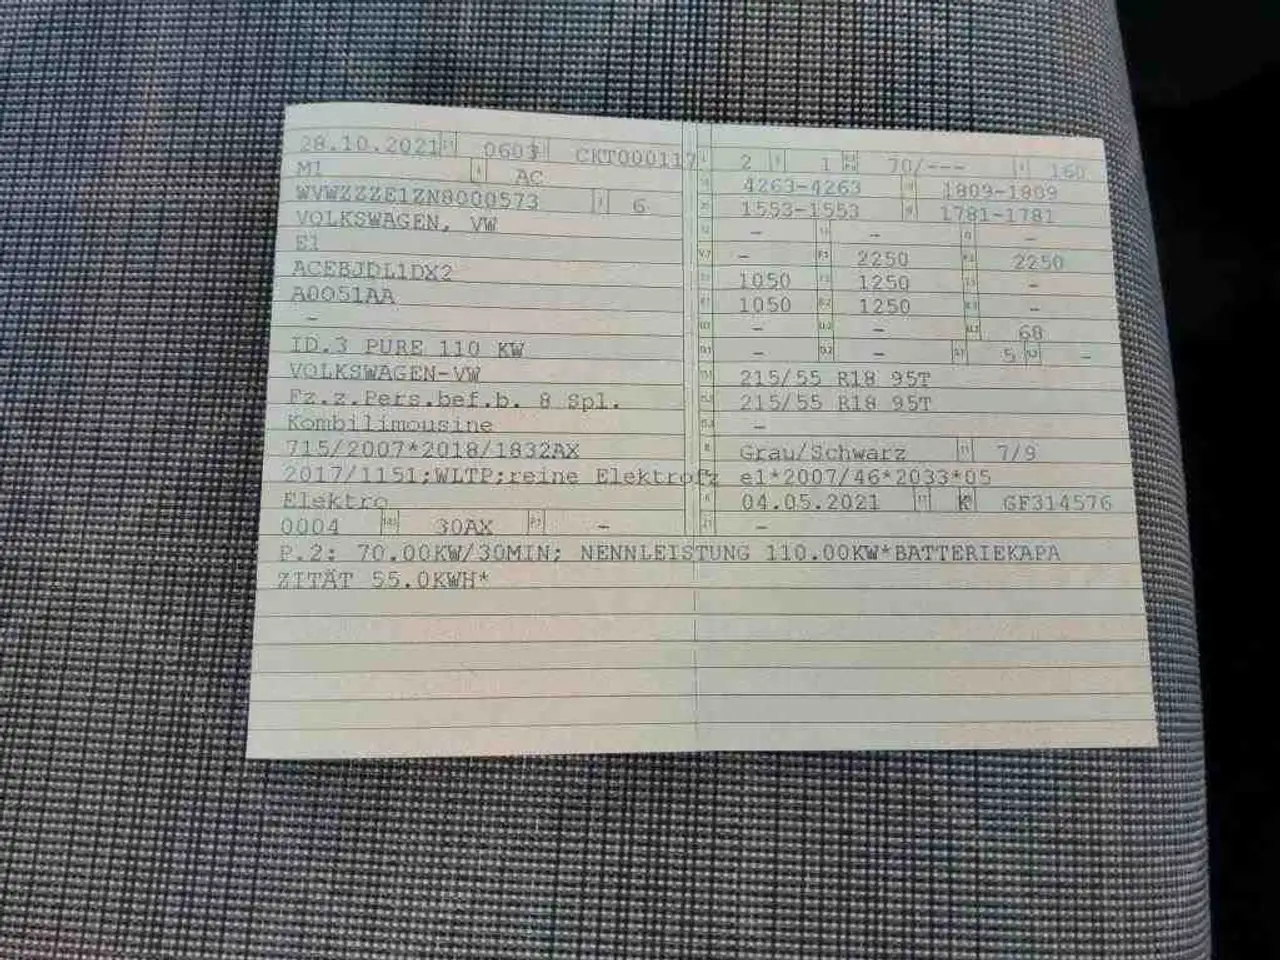 28.10.2021 0603 CKT000117
M1 AC
WVWZZZE1ZN8000573 6
VOLKSWAGEN, VW
E1
ACEBJDL1DX2
A0051AA
-
ID.3 PURE 110 KW
VOLKSWAGEN-VW
Fz.z.Pers.bef.b. 8 Spl.
Kombilimousine
715/2007*2018/1832AX
2017/1151;WLTP;reine Elektrofz
Elektro
0004 30AX -
2 1 70/--- 160
4263-4263 1809-1809
1553-1553 1781-1781
- - -
- 2250 2250
1050 1250 -
1050 1250 -
- - 68
- - 5 -
215/55 R18 95T
215/55 R18 95T
-
Grau/Schwarz 7/9
e1*2007/46*2033*05
04.05.2021 K GF314576
-
P.2: 70.00KW/30MIN; NENNLEISTUNG 110.00KW*BATTERIEKAPA
ZITÄT 55.0KWH*